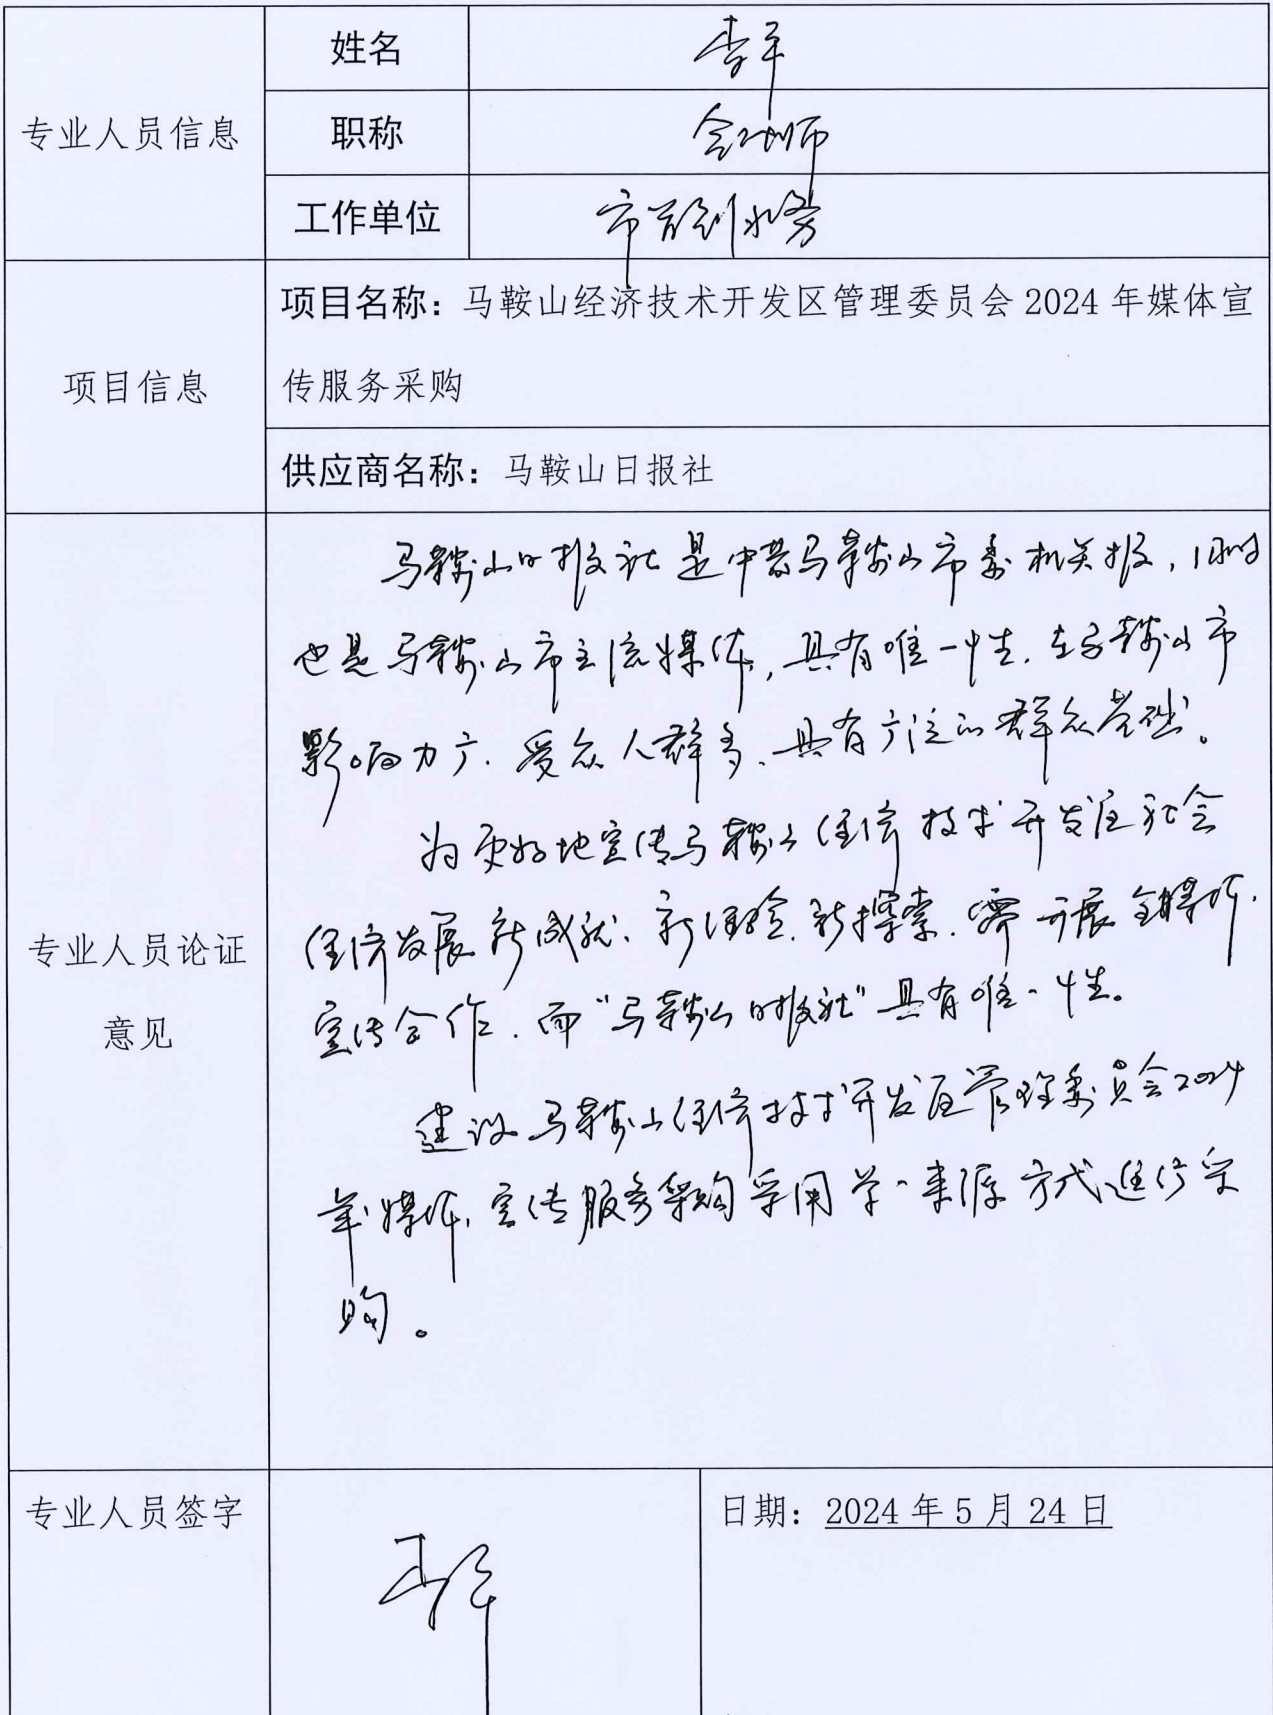 姓名 李平
专业人员信息 职称 会计师
工作单位 市首创水务
项目名称：马鞍山经济技术开发区管理委员会2024年媒体宣
项目信息 传服务采购
供应商名称：马鞍山日报社
马鞍山日报社是中共马鞍山市委机关报，同时
也是马鞍山市主流媒体，具有唯一性，在马鞍山市
影响力广、受众人群多、具有广泛的群众基础。
为更好地宣传马鞍山经济技术开发区社会
经济发展新成就、新经验、新探索，需开展全媒体
宣传合作，而“马鞍山日报社”具有唯一性。
专业人员论证
意见
建议马鞍山经济技术开发区管理委员会2024
年媒体宣传服务采购采用单一来源方式进行采
购。
专业人员签字 李平 日期：2024年5月24日